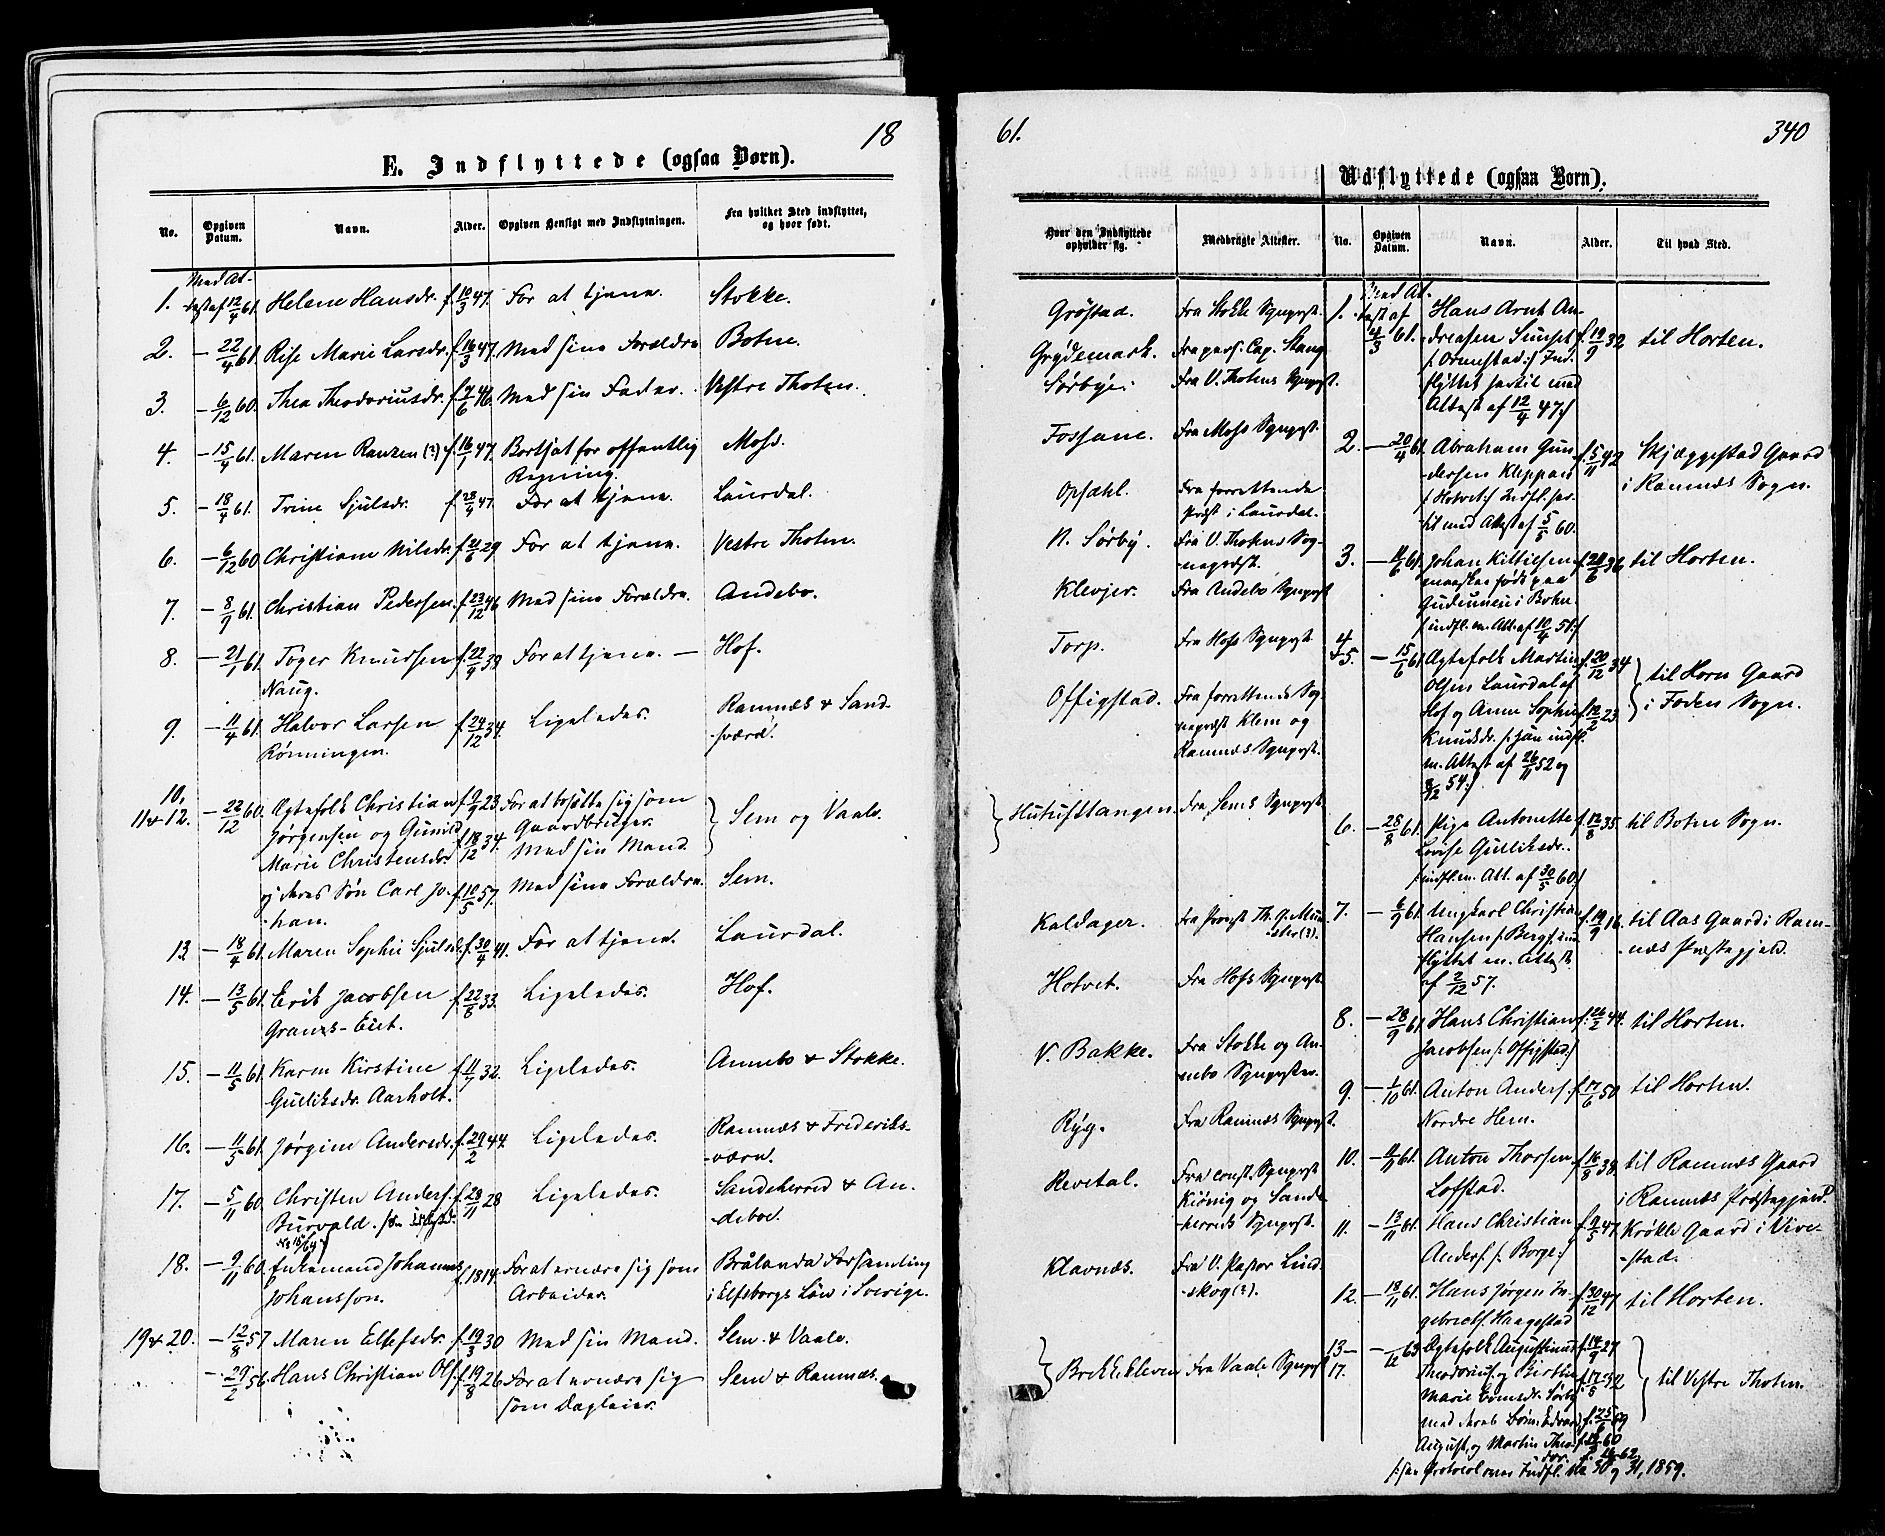 18
E. Indflyttede (ogsaa Børn).
No.
Opgiven Datum.
Navn.
Alder.
Opgiven Hensigt med Indflytningen.
Fra hvilket Sted indflyttet, og hvor født.
Med At-
1. -test af 12/4 61. Helene Hansdr. f. 10/3 47. For at tjene. Stokke.
2. — 22/4 61. Marie Larsdr. f. 16/3 47. Med sine Forældre. Botne.
3. — 6/12 60. Thea Theodoriusdr. f. 7/6 46. Med sin Fader. Vestre Thoten.
4. — 15/4 61. Maren (?) f. 16/1 47. Bortsat for offentlig Moss.
Regning.
5. — 18/4 61. Trine Sjulsdr. f. 28/4 47. For at tjene. Laurdal.
6. — 6/12 60. Christiane Nilsdr. f. 21/6 29 For at tjene. Vestre Thoten.
7. — 8/7 61. Christian Pedersen f. 23/12 46 Med sine Forældre. Andebo.
8. — 21/1 61. Knudsen f. 22/9 39 For at tjene. — Hof.
9. — 11/4 61. Halvor Larsen f. 24/12 34. Ligeledes. Ramnæs & Sand-
Rønningen. -sværd.
10,
11 & 12. — 22/12 60. Ægtefolk Christian f. 9/9 23. For at bosætte sig som
Jørgensen og Gunild Gaardbruger. Sem og Vaale.
Marie Christensdr. f. 18/12 34. Med sin Mand.
og deres Søn Carl Jo- f. 10/5 57. Med sine Forældre. Sem.
-han.
13 — 18/4 61. Maren Sophie Sjulsd. f. 30/4 41. For at tjene. Laurdal.
14. — 13/5 61. Erik Jacobsen f. 22/8 33. Ligeledes. Hof.
15. — 11/5 61. Karen Kirstine f. 11/7 32. Ligeledes. Annebo & Stokke.
Gulliksdr. Aarholt.
16. — 11/5 61. Jørgine Andersdr. f. 29/2 44. Ligeledes. Ramnæs & Frederiks-
-værn.
17. — 5/11 60. Christen Anders. f. 23/11 28 Ligeledes. Sandeherred & An-
-deboe.
18. — 9/11 60. Enkemand Johannes f. 1814. For at ernære sig som Brålanda Forsamling
Johansson. Arbeider. i Elfsborgs Län i Sverige.
19 & 20. — 12/8 57 Maren Ellefsdr. f. 19/3 30 Med sin Mand. Sem & Vaale.
— 29/2 56. Hans Christian Ols. f. 19/8 26 For at ernære sig Sem & Ramnæs.
som Dagleier.
61.
340
Udflyttede (ogsaa Børn).
Hvor den Indflyttede opholder sig.
Medbragte Attester.
No.
Opgiven Datum.
Navn.
Alder.
Til hvad Sted.
Grøstad. Fra Stokke Sgnprst.
Grydemark. Fra pers. Cap. Stang.
Sørbye. Fra V. Thotens Sgnprst.
Fossane. Fra Moss Sgnprst.
Opsahl. Fra forrettende
Præst i Laurdal.
N. Sørby. Fra V. Thotens Sog-
-nepræst.
Klevjer. Fra Andebo Sgnprst
Torp. Fra Hofs Sgnprst.
Offigstad. Fra forrettende Sog-
nepræst Klem og
Ramnæs Sgnprst.
Fra Sems Sgnprst.
Kaldager. Fra Provst Th. G. Mun-
-ster (?).
Hotvet. Fra Hofs Sgnprst.
V. Bakke. Fra Stokke og An-
nebo Sgnprster.
Ryg. Fra Ramnæs Sgnprst.
Revetal. Fra const. Sgnprst
Kiönig og Sande-
herreds Sgnprst.
Klavnæs. Fra V. Pastor Lind-
-skog (?).
Brekke Eleven Fra Vaale Sgnprst
Med At-
1. -test af Hans Arnt An-
4/3 61. -dreasen f. 19/9 32 til Horten.
/: Ormestad :/ Ind-
flyttet hertil med
Attest af 12/4 47 :/
2. — 20/4 61. Abraham Gun- f. 5/11 42 Skjæggestad Gaard
-dersen Kleppan i Ramnæs Sogn.
/: Hotvet :/ Indfl. her-
til med Attest af 5/5 60.
3. — 11/6 61. Johan Kittilsen f. 28/6 36 til Horten.
maaskee født paa
i Botne.
/: indfl. m. Att. af 10/4 51 :/
4
& 5. — 15/6 61 Ægtefolk Martin f. 20/12 34 til Horn Gaard
Olsen Laurdal af i Foden Sogn.
Hof og Anne Sophie f. 12/2 23
Knudsdr. /: han indfl.
m. Attest af 26/11 52 og
8/12 54 :/
6. — 28/8 61. Pige Antonette f. 12/8 35. til Botne Sogn.
Lovise Gulliksdr.
/: indfl. m. Att. af 30/5 60 :/
7. — 6/9 61. Ungkarl Christian f. 19/9 16. til Aas Gaard i Ram-
Hansen /: Berg :/ ind- næs Præstegjeld.
flyttet m. Attest
af 2/12 57.
8. — 28/9 61. Hans Christian f. 26/2 44. til Horten.
Jacobsen /: Offigstad :/
9. — 1/10 61. Anton Anders. f. 17/6 50 til Horten.
Nordre Hem.
10. — 61. Anton Thorsen f. 16/8 38. til Ramnæs Gaard
Lofstad. i Ramnæs Præstegjeld.
11. — 13/11 61. Hans Christian f. 9/5 47. Krökle Gaard i Vive-
Anders. /: Borge :/ -stad.
12. — 18/11 61. Hans Jørgen In- f. 30/12 47 til Horten.
gebrets. Haugestad
13— — /12 63 Ægtefolk Augustinus f. 14/9 27
17. Theodorius. og Birthe f. 17/5 32 til Vestre Thoten.
Marie Evensdr. Sørby
med deres Børn: Edvard f. 25/ 59
August, og Martin Theo- f. 60
dor. 62
/: see Protocol over Indfl. No 30 og 31, 1859.